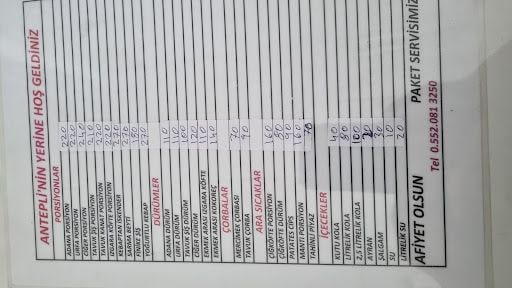 ANTEPLİ'NİN YERİNE HOŞ GELDİNİZ
PORSİYONLAR
ADANA PORSİYON 220
URFA PORSİYON 220
CİĞER PORSİYON 240
TAVUK ŞİŞ PORSİYON 210
TAVUK KANAT PORSİYON 220
IZGARA KÖFTE PORSİYON 220
KEBAPTAN İSKENDER 230
SARMA BEYTİ 230
FİNİKE ŞİŞ 180
YOĞURTLU KEBAP 270
DÜRÜMLER
ADANA DÜRÜM 110
URFA DÜRÜM 110
TAVUK ŞİŞ DÜRÜM 100
CİĞER DÜRÜM 120
EKMEK ARASI IZGARA KÖFTE 110
EKMEK ARASI KOKOREÇ 140
ÇORBALAR
MERCİMEK ÇORBASI 70
TAVUK ÇORBA 90
ARA SICAKLAR
ÇİĞKÖFTE PORSİYON 160
ÇİĞKÖFTE DÜRÜM 80
PATATES CİPS 90
MANTI PORSİYON 160
TAHİNLİ PİYAZ 70
İÇECEKLER
KUTU KOLA 40
LİTRELİK KOLA 80
2,5 LİTRELİK KOLA 100
AYRAN
ŞALGAM 30
SU 10
LİTRELİK SU 20
AFİYET OLSUN PAKET SERVİSİMİZ
Tel 0.552.081 3250